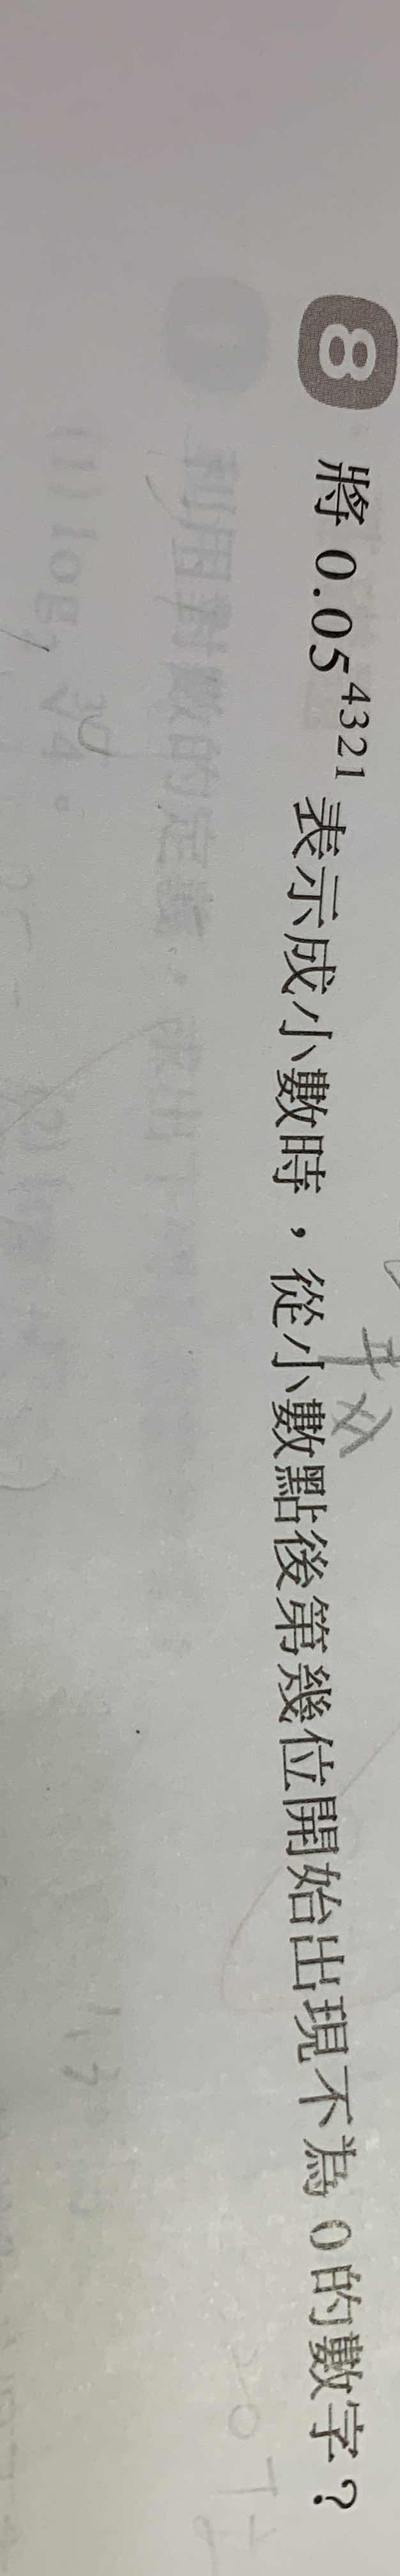 8 將 0.05⁴³²¹ 表示成小數時，從小數點後第幾位開始出現不為 0 的數字？